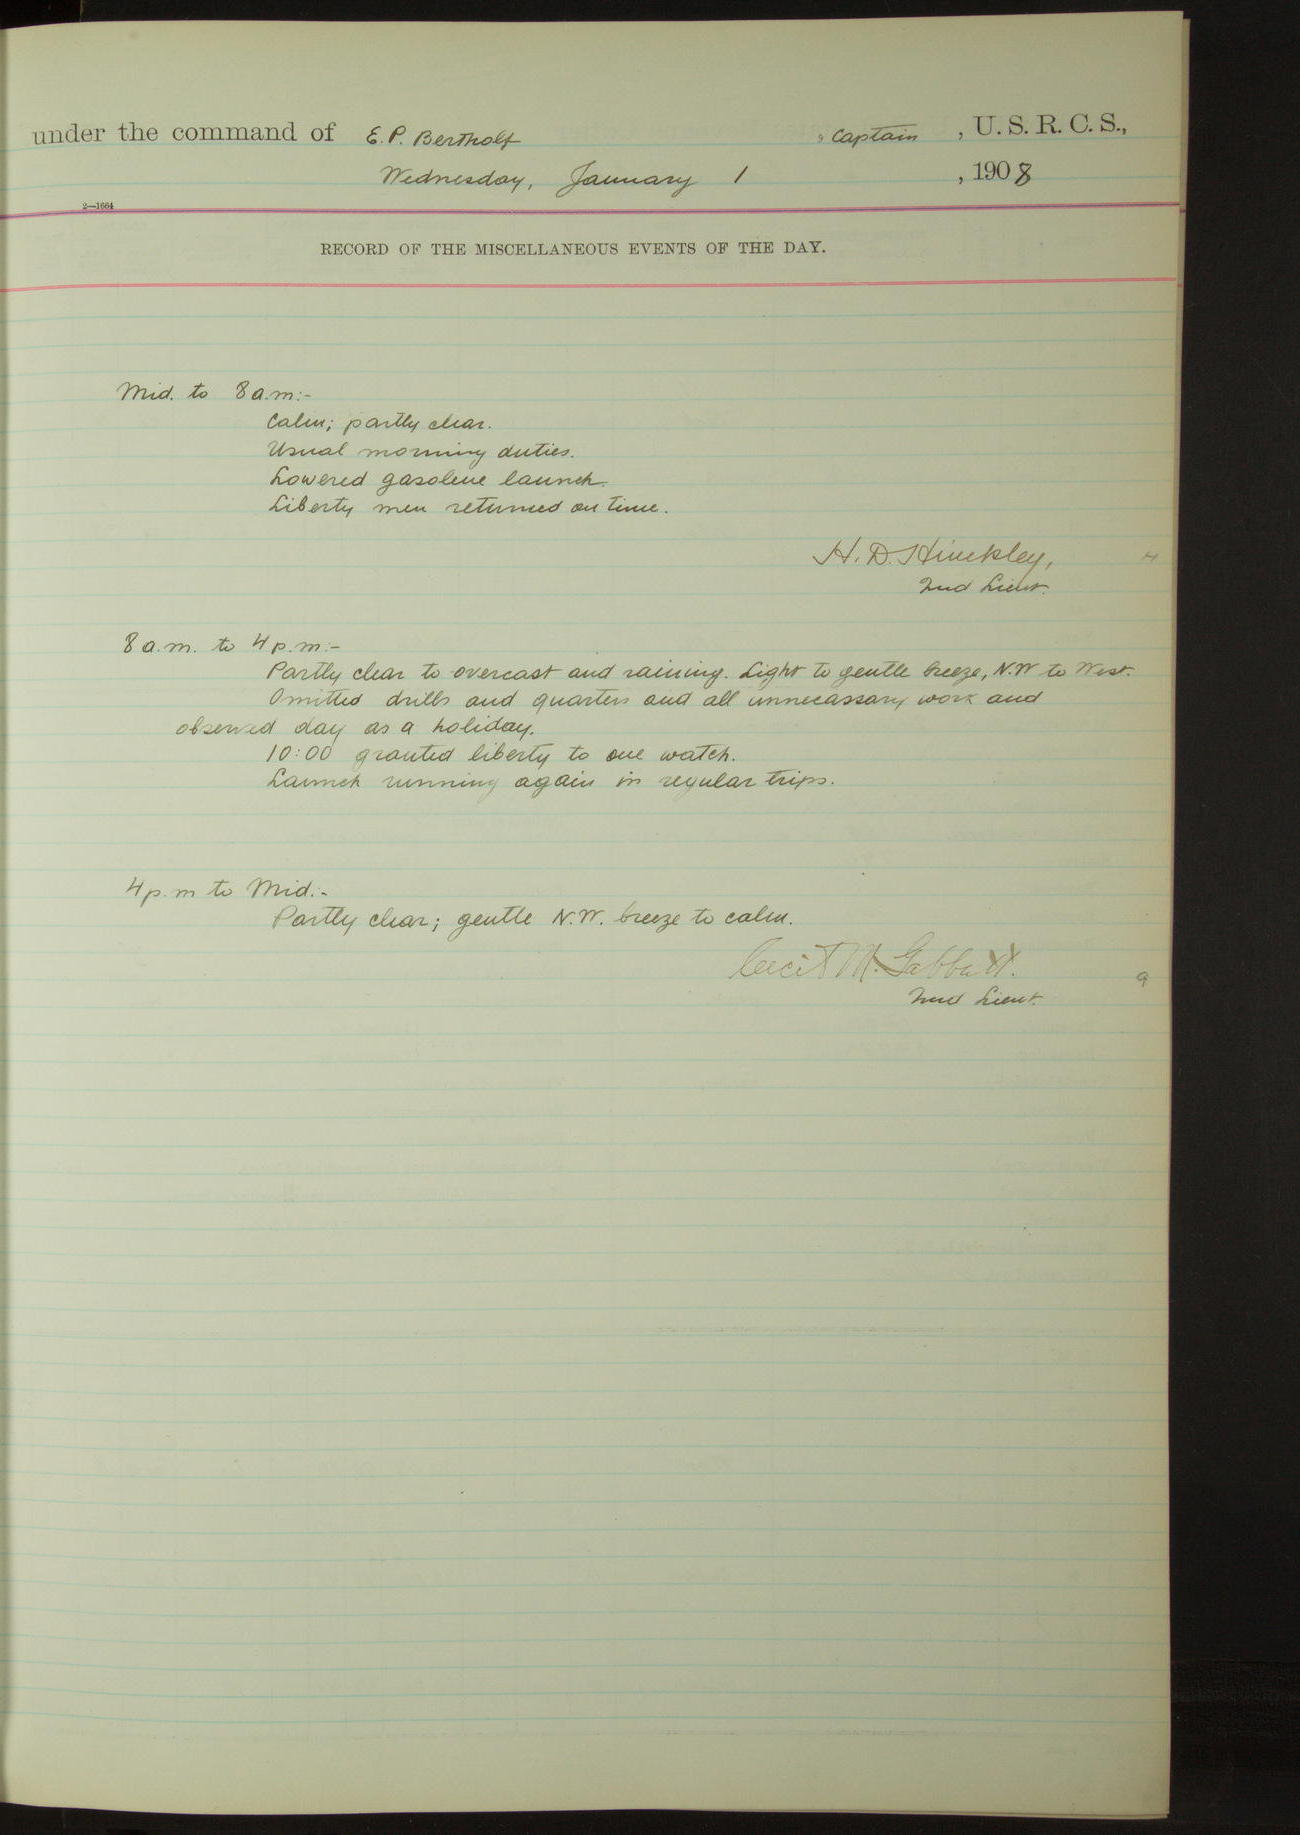 under the command of E. P. Bertholf, Captain, U. S. R. C. S.,
Wednesday, January 1, 1908
2—1664
RECORD OF THE MISCELLANEOUS EVENTS OF THE DAY.
Mid. to 8 a.m:-
Calm; partly clear.
Usual morning duties.
Lowered gasolene launch.
Liberty men returned on time.
H. D. Hinckley,
2nd Lieut.
8 a.m. to 4 p.m:-
Partly clear to overcast and raining. Light to gentle breeze, N.W to West.
Omitted drills and quarters and all unnecassary work and
observed day as a holiday.
10:00 granted liberty to one watch.
Launch running again in regular trips.
4 p.m to Mid.-
Partly clear; gentle N.W. breeze to calm.
Cecil M. Gabbett.
2nd Lieut.